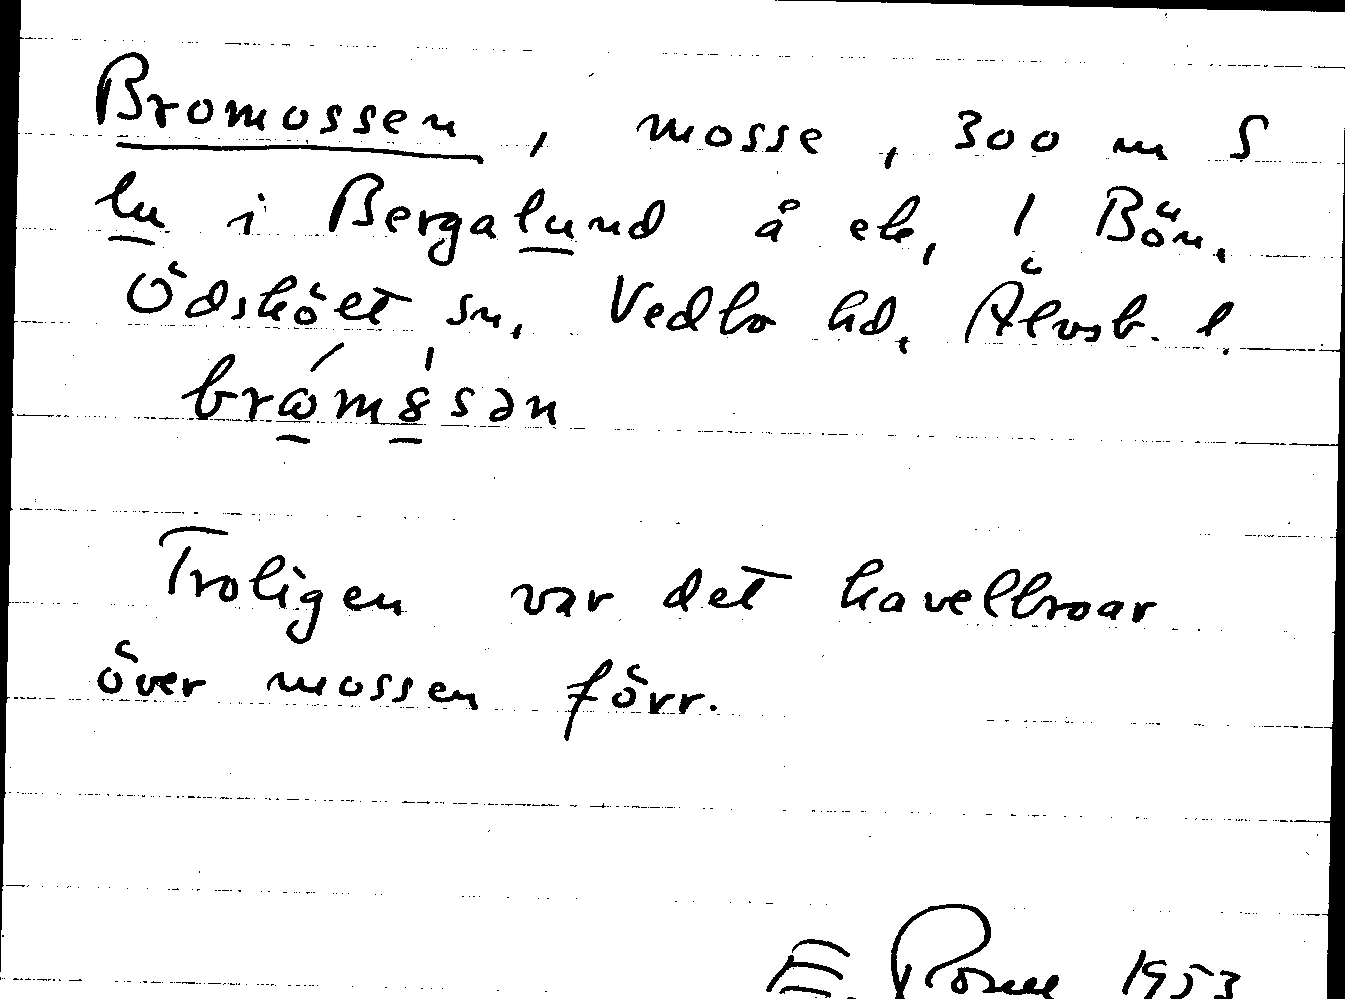 Bromossen, mosse, 300 m S
lu i Bergalund å ek. 1 Bön,
Ödskölt sn, Vedbo hd, Älvsb. l.
brωmɞsən
Troligen var det kavelbroar
över mossen förr.
E. 1953